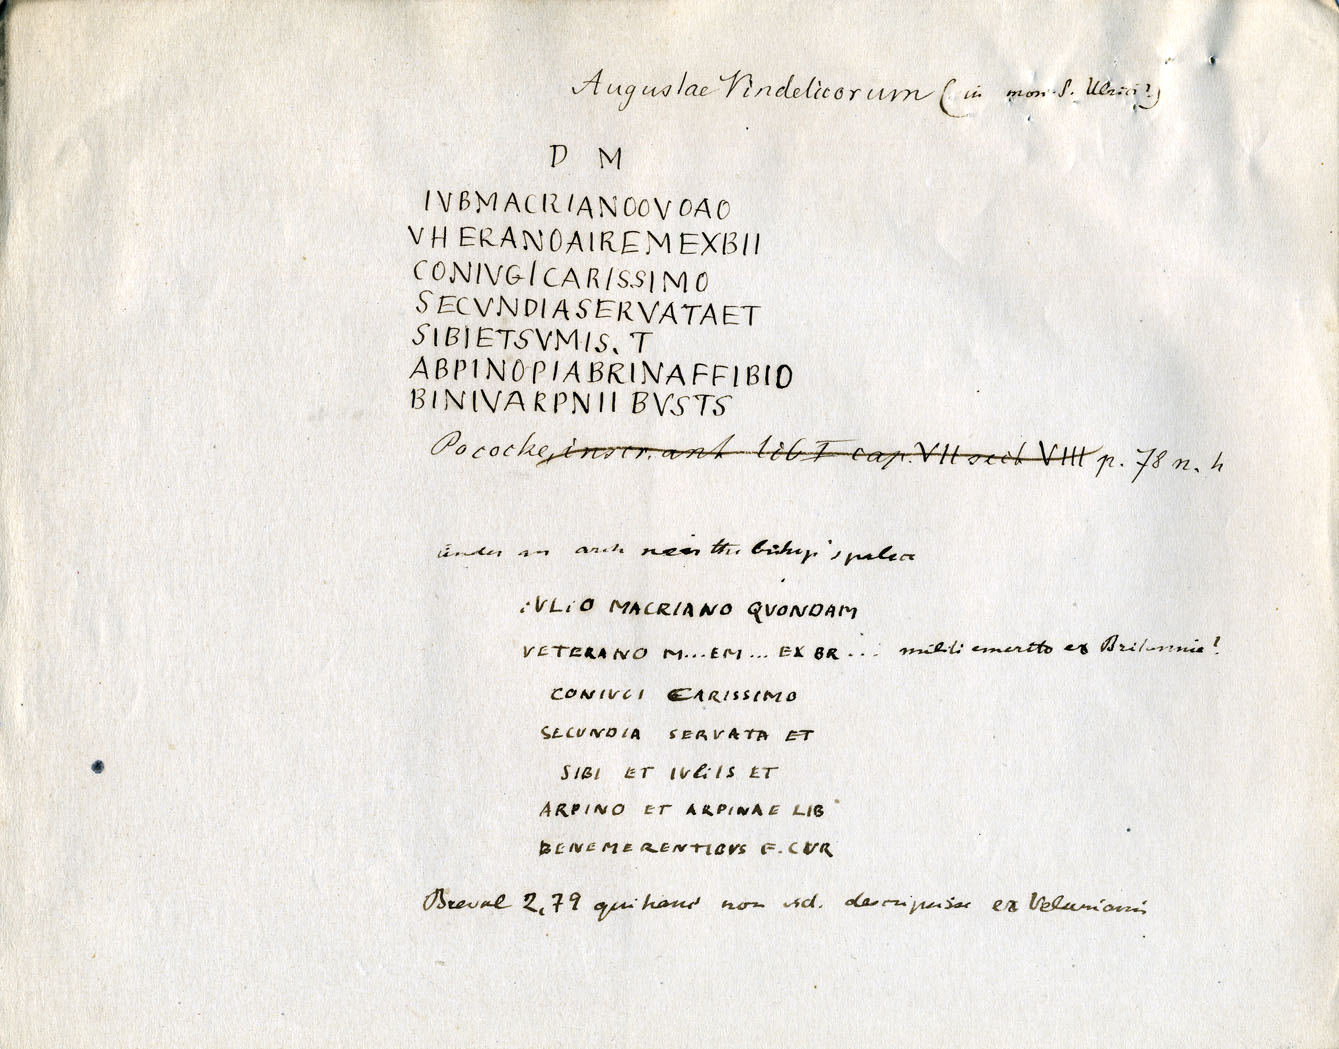 Augustae Vindelicorum (in mon. S. Ulrici?)
D M
IVBMACRIANOOVOAO
VHERANOAIREMEXBII
CONIVGICARISSIMO
SECVNDIASERVATAET
SIBIETSVMIS. T
ABPINOPIABRINAFFIBIO
BINIVARPNII BVSTS
Pococke, inscr. ant lib I cap. VII sect VIII p. 78 n. h
under an arch near the bishop's palace
IVLIO MACRIANO QVONDAM
VETERANO M...EM... EX BR... militi emerito ex Britannia?
CONIVCI CARISSIMO
SECUNDIA SERVATA ET
SIBI ET IVLIIS ET
ARPINO ET ARPINAE LIB
BENEMERENTIBVS F. CVR
Breval 2,79 qui hanc non vid. descripsisse ex